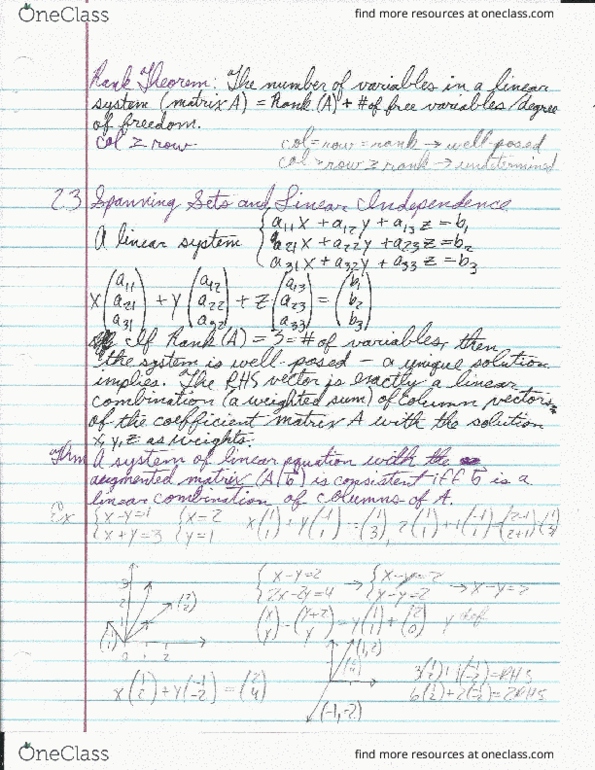 OneClass
find more resources at oneclass.com
Rank Theorem: The number of variables in a linear
system (matrix A) = Rank (A) + # of free variables/degree
of freedom.
col ≥ row
col = row = rank → well-posed
col > row ≥ rank → undetermind
2.3 Spanning Sets and Linear Independence
A linear system
a11x + a12y + a13z = b1
a21x + a22y + a23z = b2
a31x + a32y + a33z = b3
x(a11 a21 a31) + y(a12 a22 a32) + z(a13 a23 a33) = (b1 b2 b3)
If Rank(A) = 3 = # of variables, then
the system is well-posed – a unique solution
implies. The RHS vector is exactly a linear
combination (a weighted sum) of column vectors
of the coefficient matrix A with the solution
x, y, z as weights.
Thm A system of linear equation with the
augmented matrix (A|b) is consistent iff b is a
linear combination of columns of A.
Ex {x-y=1 {x=2 x(1 1) + y(-1 1) = (1 3), 2(1 1) + 1(-1 1) = (2-1 2+1) = (1 3)
{x+y=3 {y=1
{x-y=2 → {x-y=2 → x-y=2
{2x-2y=4
(x y) = (y+2 y) = y(1 1) + (2 0)
x(1 2) + y(-1 -2) = (2 4)
(1,2)
(-1,-2)
= RHS
= 2RHS
OneClass
find more resources at oneclass.com